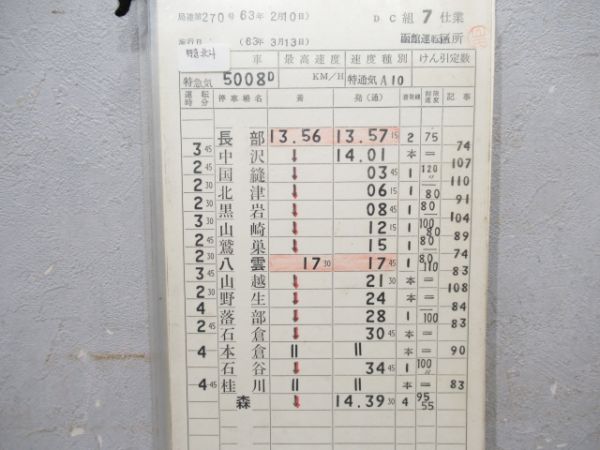 局達第270号 63年 2月10日) D C 組 7 仕業
施行月日 (63年 3月13日) 函館運転区所
特急北斗 車 最高速度 速度種別 けん引定数
特急気 5008D KM/H 特通気A10
運転時分 停車場名 着 発(通) 着発線 制限速度 記事
長部 13.56 13.57 15 2 75
3 45 74
中沢 ↓ 14.01 本 =
2 45 107
国縫 ↓ 03 45 1 120
2 30 110
北津 ↓ 06 15 1 80
2 30 91
黒岩 ↓ 08 45 1 80
3 30 104
山崎 ↓ 12 15 1 100 80
2 45 89
鷲巣 ↓ 15 1 80
2 30 74
八雲 17 30 17 45 1 80 110
3 45 83
山越 ↓ 21 30 本 =
2 30 108
野生 ↓ 24 本 =
4 84
落部 ↓ 28 1 100
2 45 83
石倉 ↓ 30 45 本 =
4 90
本倉 || || 本 =
石谷 ↓ 34 45 1 100
4 45 83
桂川 || || 本 =
森 ↓ 14.39 30 4 95 55